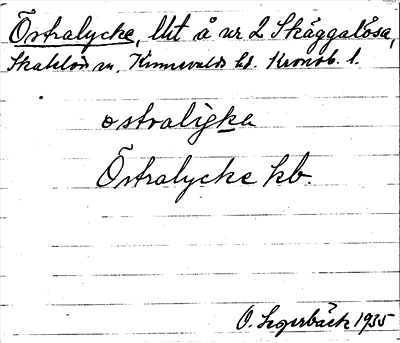 Östralycke, lht å nr 2 Skäggalösa,
Skatelövs sn. Kinnevalds hd. Kronob. l.
ostraligka
Östralycke kb.
O. Segerbäck 1935